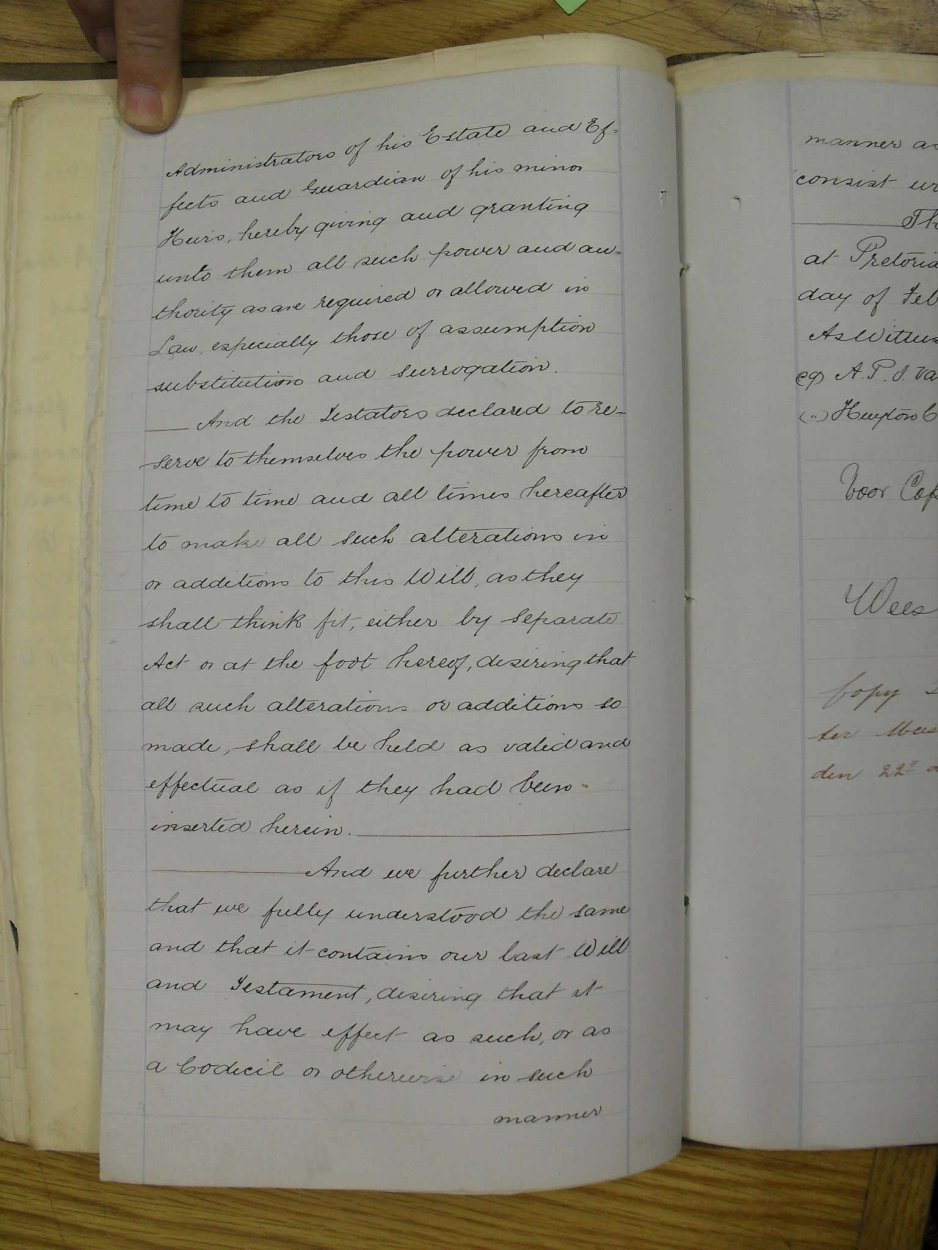 Administrators of his Estate and Ef-
fects and Guardian of his minor
Heirs, hereby giving and granting
unto them all such power and au-
thority as are required or allowed in
Law, especially those of assumption
substitution and surrogation.
And the Testators declared to re-
serve to themselves the power from
time to time and all times hereafter
to make all such alterations in
or additions to this Will, as they
shall think fit, either by separate
Act or at the foot hereof, desiring that
all such alterations or additions so
made, shall be held as valid and
effectual as if they had been
inserted herein.
And we further declare
that we fully understood the same
and that it contains our last Will
and Testament, desiring that it
may have effect as such, or as
a Codicil or otherwise in such
manner
manner as
consist
Th
at Pretoria
day of Feb
As Witnes
A. P. J. Va
Voor Cop
Wees
Copy
ter
den 22e